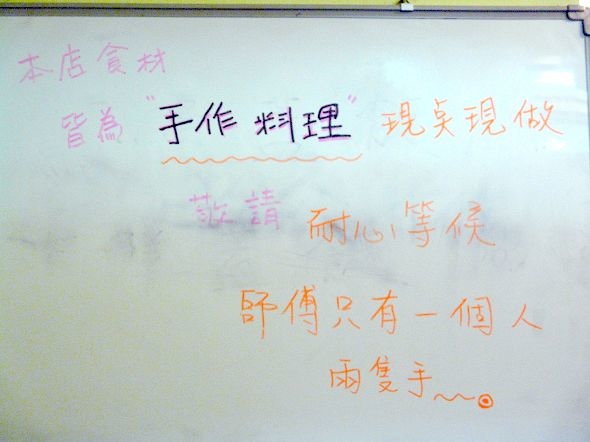 本店食材
皆為"手作料理"現点現做
敬請 耐心等候
師傅只有一個人
兩隻手~~。